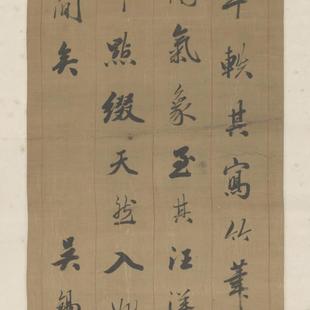 軼其寫竹葉
氣象至其汪洋
點綴天然入
間矣吳錫